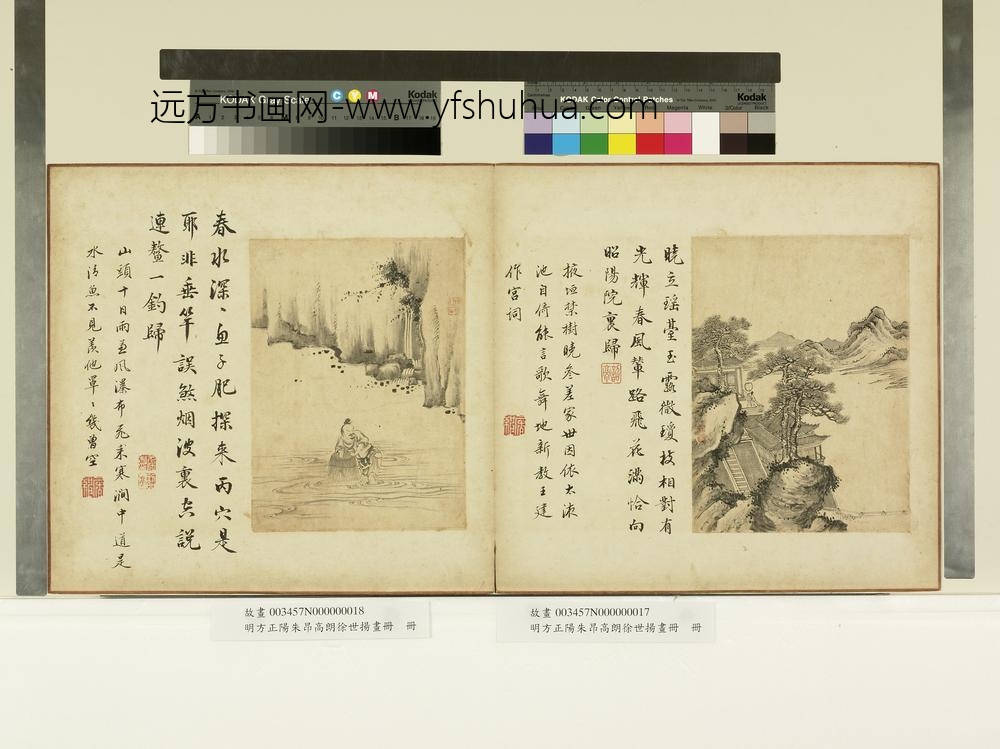 KODAK Gray Scale
C Y M
Kodak
KODAK Color Control Patches
Kodak
远方书画网-www.yfshuhua.com
Magenta White 3/Color Black
曉立瑶臺玉露微瓊枝相對有
光輝春風輦路飛花滿恰向
昭陽院裏歸
掖垣禁樹曉參差家世因依太液
池自倚能言歌舞地新教王建
作宮词
春水深〻魚子肥探來丙穴是
耶非垂竿誤煞烟波裏空説
連鰲一釣歸
山頭十日雨兼風瀑布飛来寒澗中道是
水清魚不見羡他罩〻幾曾空
故畫 003457N000000018
明方正陽朱昂高朗徐世揚畫冊 冊
故畫 003457N000000017
明方正陽朱昂高朗徐世揚畫冊 冊